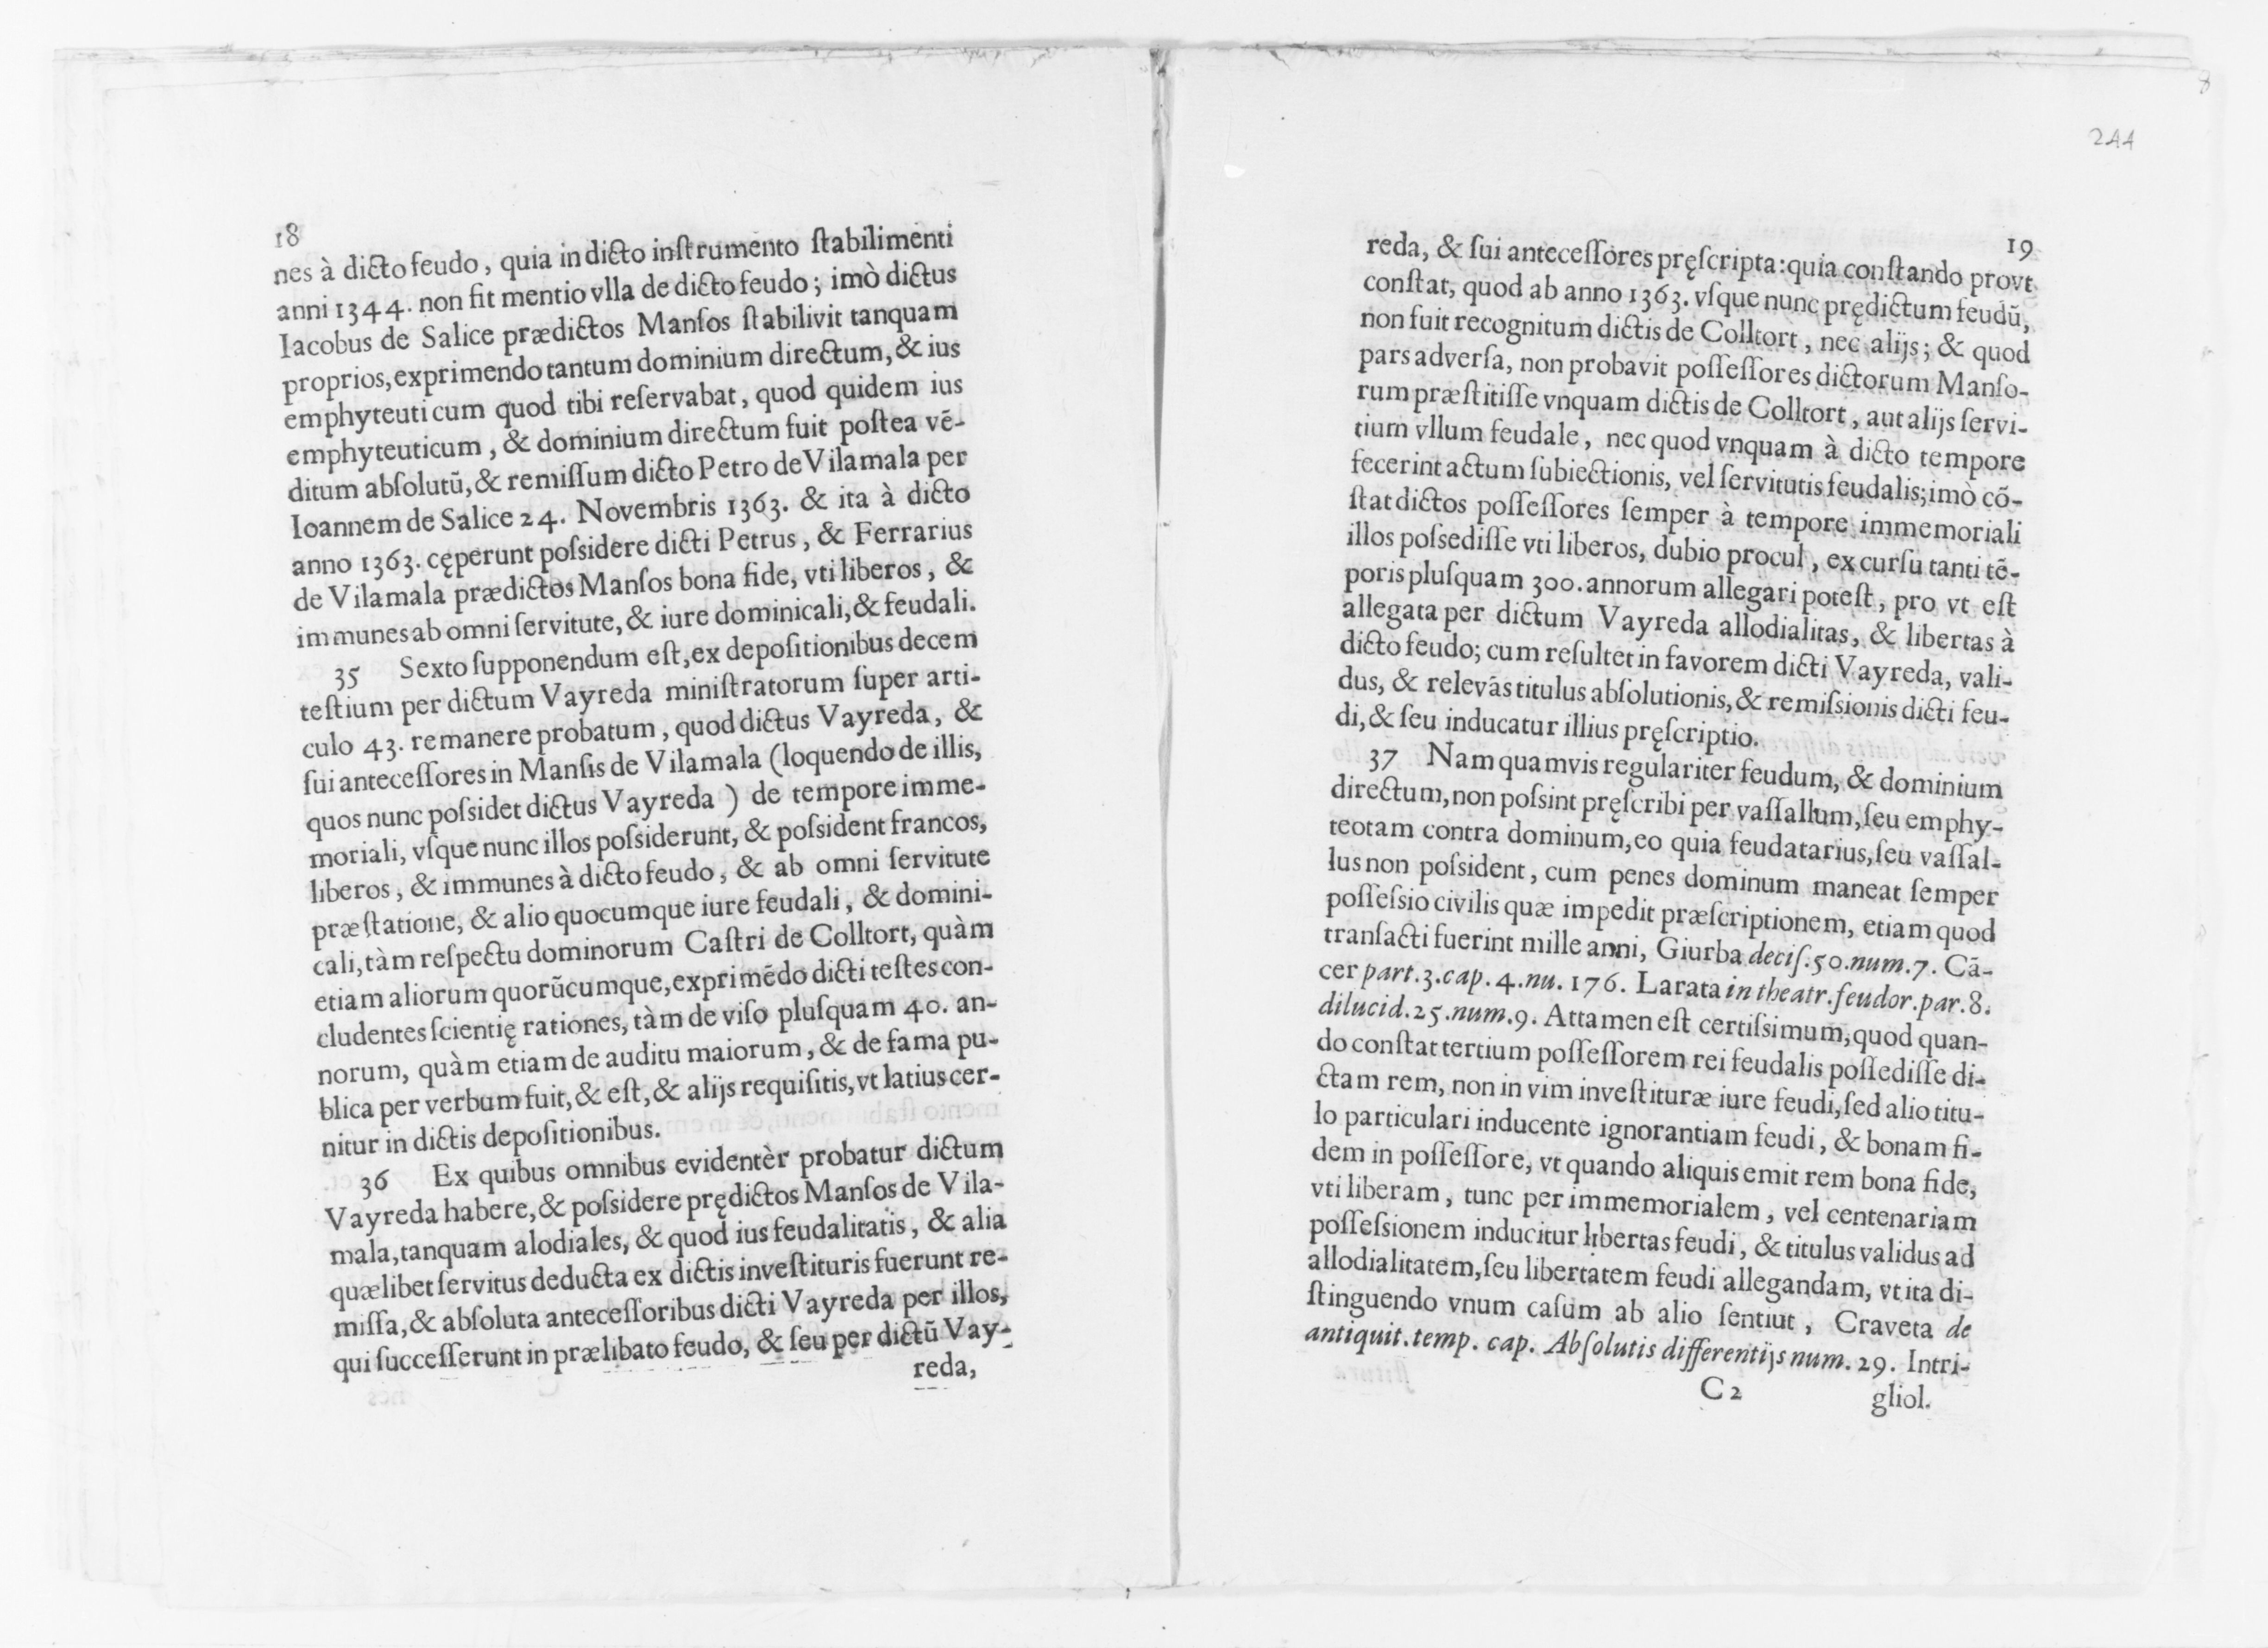 18
nes à dicto feudo, quia in dicto inſtrumento ſtabilimenti
anni 1344. non fit mentio vlla de dicto feudo; imò dictus
Iacobus de Salice prædictos Manſos ſtabilivit tanquam
proprios, exprimendo tantum dominium directum, & ius
emphyteuticum quod tibi reſervabat, quod quidem ius
emphyteuticum, & dominium directum fuit poſtea vẽ-
ditum abſolutũ, & remiſſum dicto Petro de Vilamala per
Ioannem de Salice 24. Novembris 1363. & ita à dicto
anno 1363. cęperunt poſsidere dicti Petrus, & Ferrarius
de Vilamala prædictos Manſos bona fide, vti liberos, &
immunes ab omni ſervitute, & iure dominicali, & feudali.
35 Sexto ſupponendum eſt, ex depoſitionibus decem
teſtium per dictum Vayreda miniſtratorum ſuper arti-
culo 43. remanere probatum, quod dictus Vayreda, &
ſui anteceſſores in Manſis de Vilamala (loquendo de illis,
quos nunc poſsidet dictus Vayreda) de tempore imme-
moriali, vſque nunc illos poſsiderunt, & poſsident francos,
liberos, & immunes à dicto feudo, & ab omni ſervitute
præſtatione, & alio quocumque iure feudali, & domini-
cali, tàm reſpectu dominorum Caſtri de Colltort, quàm
etiam aliorum quorũcumque, exprimẽdo dicti teſtes con-
cludentes ſcientię rationes, tàm de viſo pluſquam 40. an-
norum, quàm etiam de auditu maiorum, & de fama pu-
blica per verbum fuit, & eſt, & alijs requiſitis, vt latius cer-
nitur in dictis depoſitionibus.
36 Ex quibus omnibus evidentèr probatur dictum
Vayreda habere, & poſsidere prędictos Manſos de Vila-
mala, tanquam alodiales, & quod ius feudalitatis, & alia
quælibet ſervitus deducta ex dictis inveſtituris fuerunt re-
miſſa, & abſoluta anteceſſoribus dicti Vayreda per illos,
qui ſucceſſerunt in prælibato feudo, & ſeu per dictũ Vay-
reda,
244
19
reda, & ſui anteceſſores pręſcripta: quia conſtando provt
conſtat, quod ab anno 1363. vſque nunc prędictum feudũ,
non fuit recognitum dictis de Colltort, nec alijs; & quod
pars adverſa, non probavit poſſeſſores dictorum Manſo-
rum præſtitiſſe vnquam dictis de Colltort, aut alijs ſervi-
tium vllum feudale, nec quod vnquam à dicto tempore
fecerint actum ſubiectionis, vel ſervitutis feudalis; imò cõ-
ſtat dictos poſſeſſores ſemper à tempore immemoriali
illos poſsediſſe vti liberos, dubio procul, ex curſu tanti tẽ-
poris pluſquam 300. annorum allegari poteſt, pro vt eſt
allegata per dictum Vayreda allodialitas, & libertas à
dicto feudo; cum reſultet in favorem dicti Vayreda, vali-
dus, & relevãs titulus abſolutionis, & remiſsionis dicti feu-
di, & ſeu inducatur illius pręſcriptio.
37 Nam quamvis regulariter feudum, & dominium
directum, non poſsint pręſcribi per vaſſallum, ſeu emphy-
teotam contra dominum, eo quia feudatarius, ſeu vaſſal-
lus non poſsident, cum penes dominum maneat ſemper
poſſeſsio civilis quæ impedit præſcriptionem, etiam quod
tranſacti fuerint mille anni, Giurba deciſ. 50. num. 7. Cã-
cer part. 3. cap. 4. nu. 176. Larata in theatr. feudor. par. 8.
dilucid. 25. num. 9. Attamen eſt certiſsimum, quod quan-
do conſtat tertium poſſeſſorem rei feudalis poſſediſſe di-
ctam rem, non in vim inveſtituræ iure feudi, ſed alio titu-
lo particulari inducente ignorantiam feudi, & bonam fi-
dem in poſſeſſore, vt quando aliquis emit rem bona fide,
vti liberam, tunc per immemorialem, vel centenariam
poſſeſsionem inducitur libertas feudi, & titulus validus ad
allodialitatem, ſeu libertatem feudi allegandam, vt ita di-
ſtinguendo vnum caſum ab alio ſentiut, Craveta de
antiquit. temp. cap. Abſolutis differentijs num. 29. Intri-
C2 gliol.